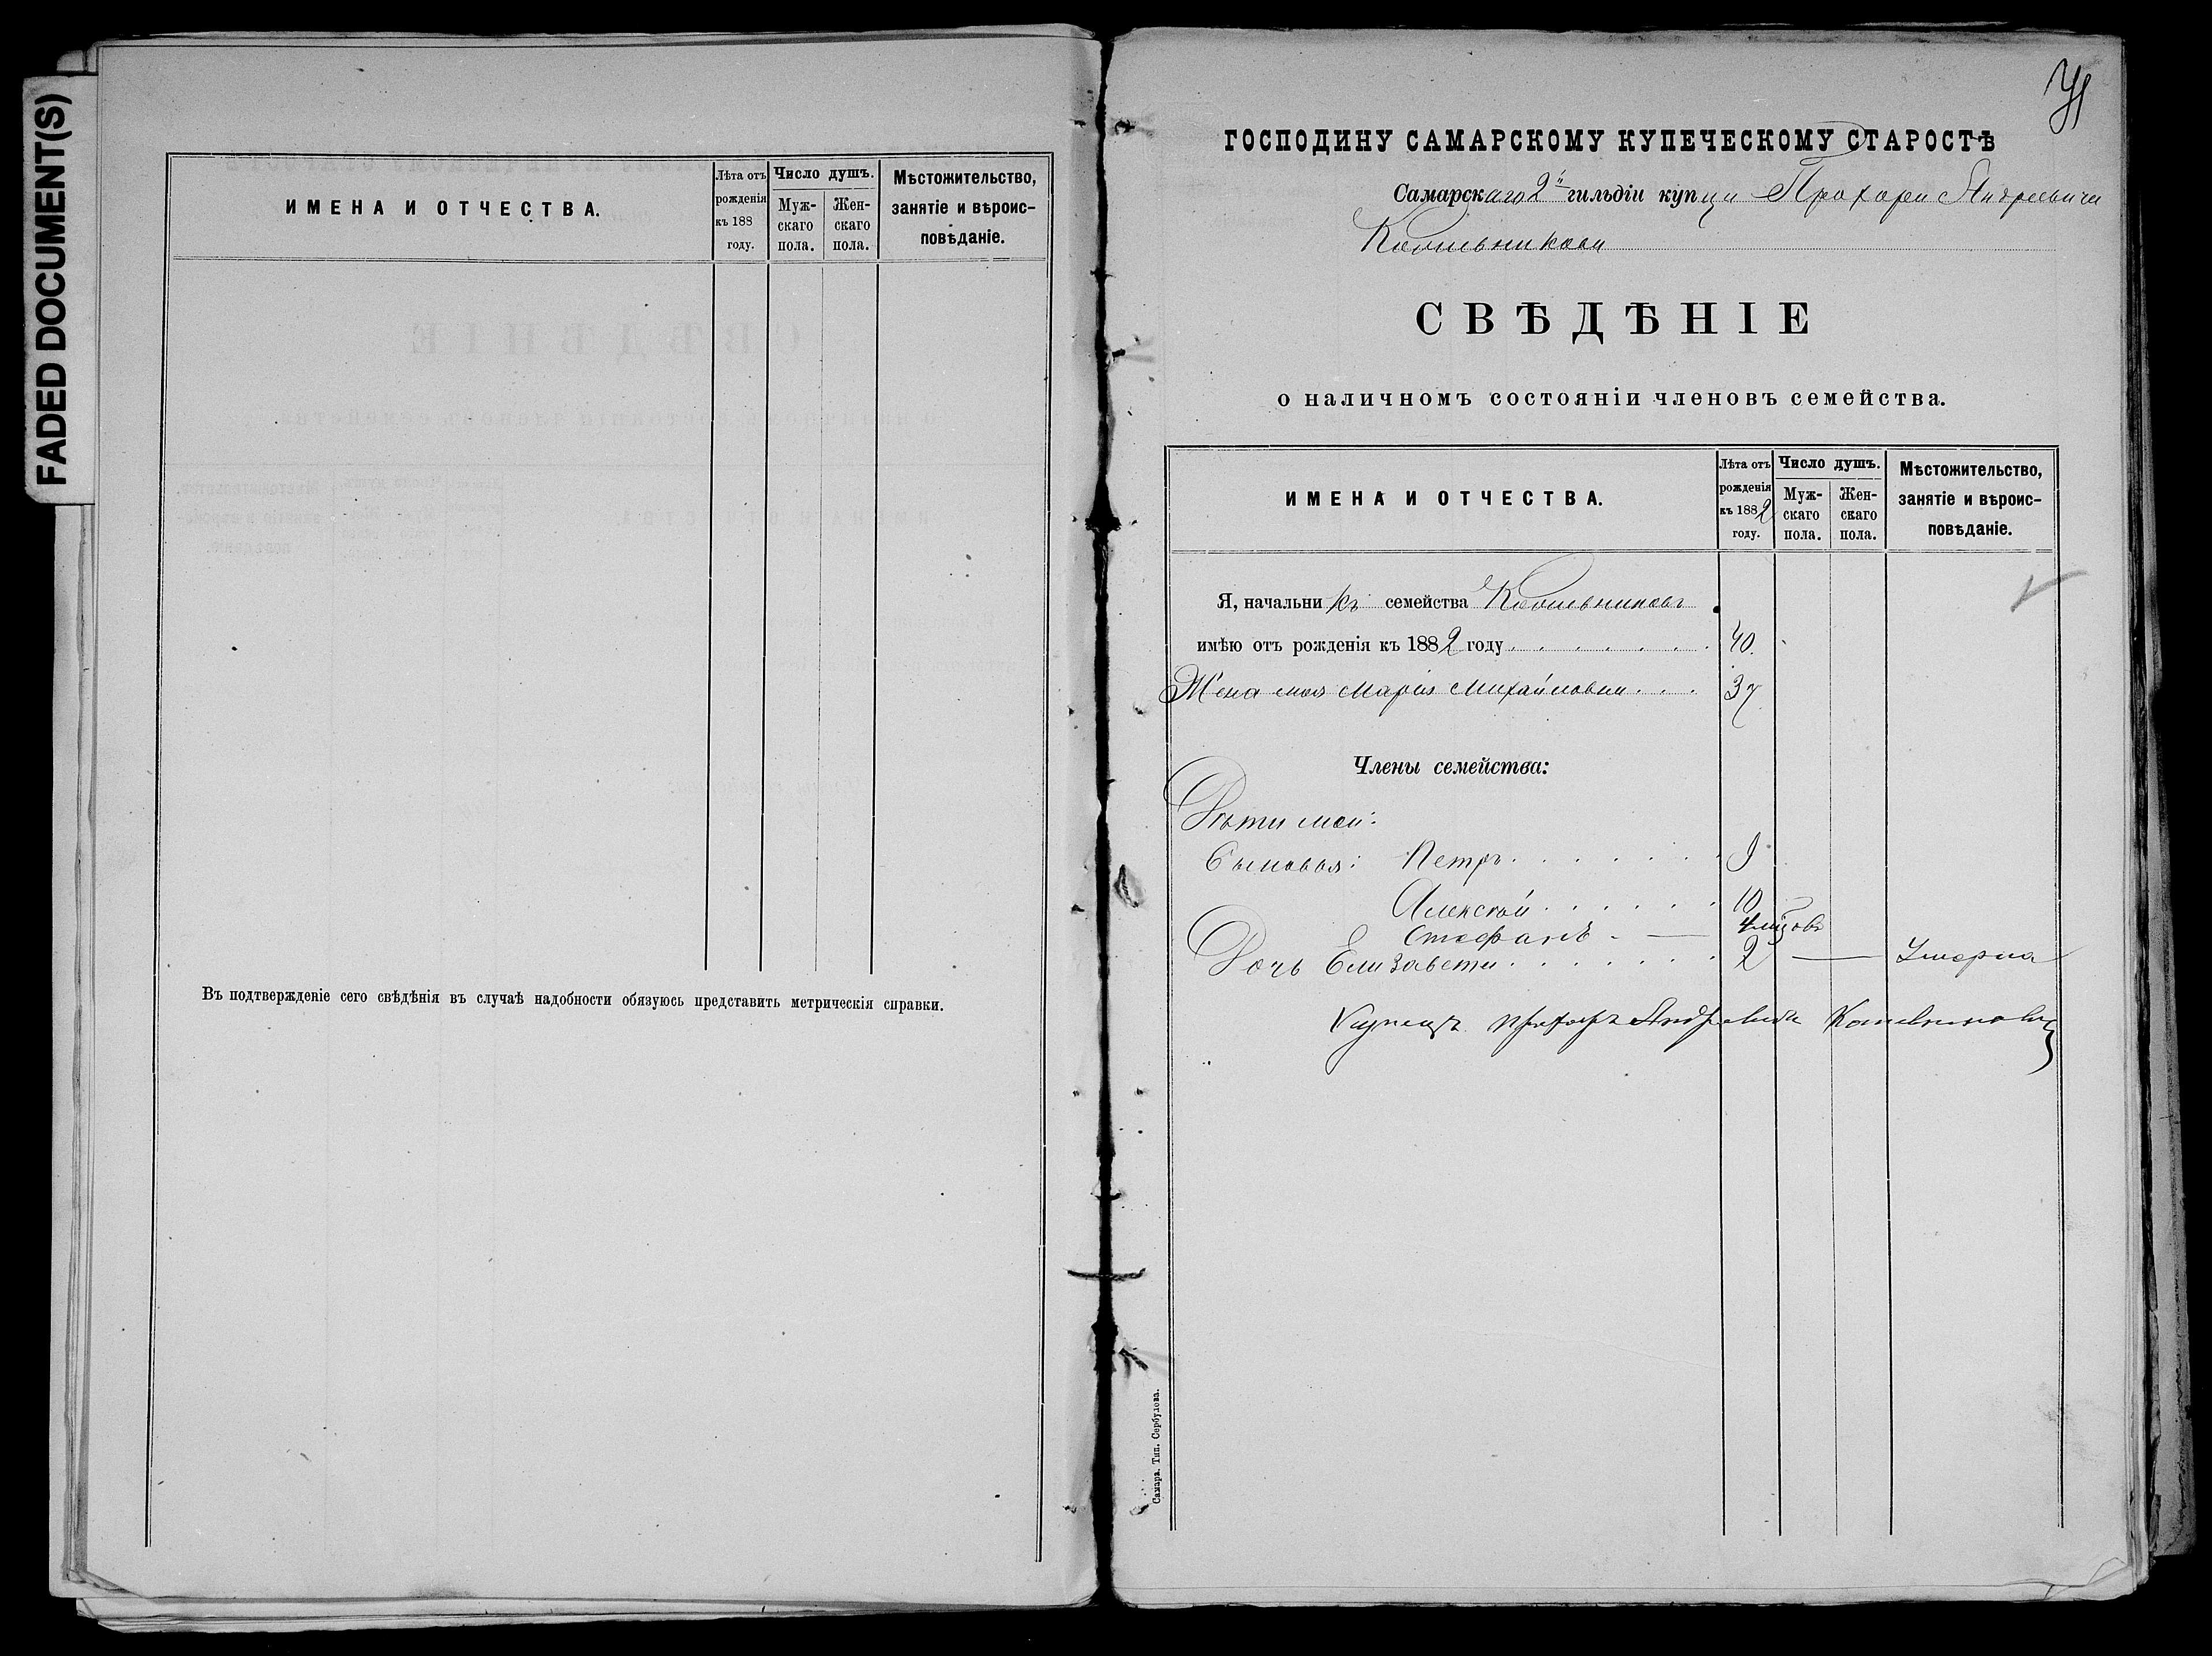 FADED DOCUMENT(S)
ИМЕНА И ОТЧЕСТВА.
Лѣта отъ рожденія къ 188 году.
Число душъ.
Мужскаго пола.
Женскаго пола.
Мѣстожительство, занятіе и вѣроисповѣданіе.
Въ подтвержденіе сего свѣдѣнія въ случаѣ надобности обязуюсь представить метрическія справки.
ГОСПОДИНУ САМАРСКОМУ КУПЕЧЕСКОМУ СТАРОСТѢ
Самарскаго 2й гильдіи купца Прохора Андреевича
СВѢДѢНІЕ
о наличномъ состояніи членовъ семейства.
ИМЕНА И ОТЧЕСТВА.
Лѣта отъ рожденія къ 1882 году.
Число душъ.
Мужскаго пола.
Женскаго пола.
Мѣстожительство, занятіе и вѣроисповѣданіе.
Я, начальникъ семейства
имѣю отъ рожденія къ 1882 году 40.
Жена моя Марія Михайловна 37
Члены семейства:
Дѣти мои:
Сыновья: Петръ 9
Алексѣй 10
Стефанъ
Дочь Елизавета 2 — Умерла
Купецъ Прохоръ Андреевичъ
Самара. Тип. Сербулова.